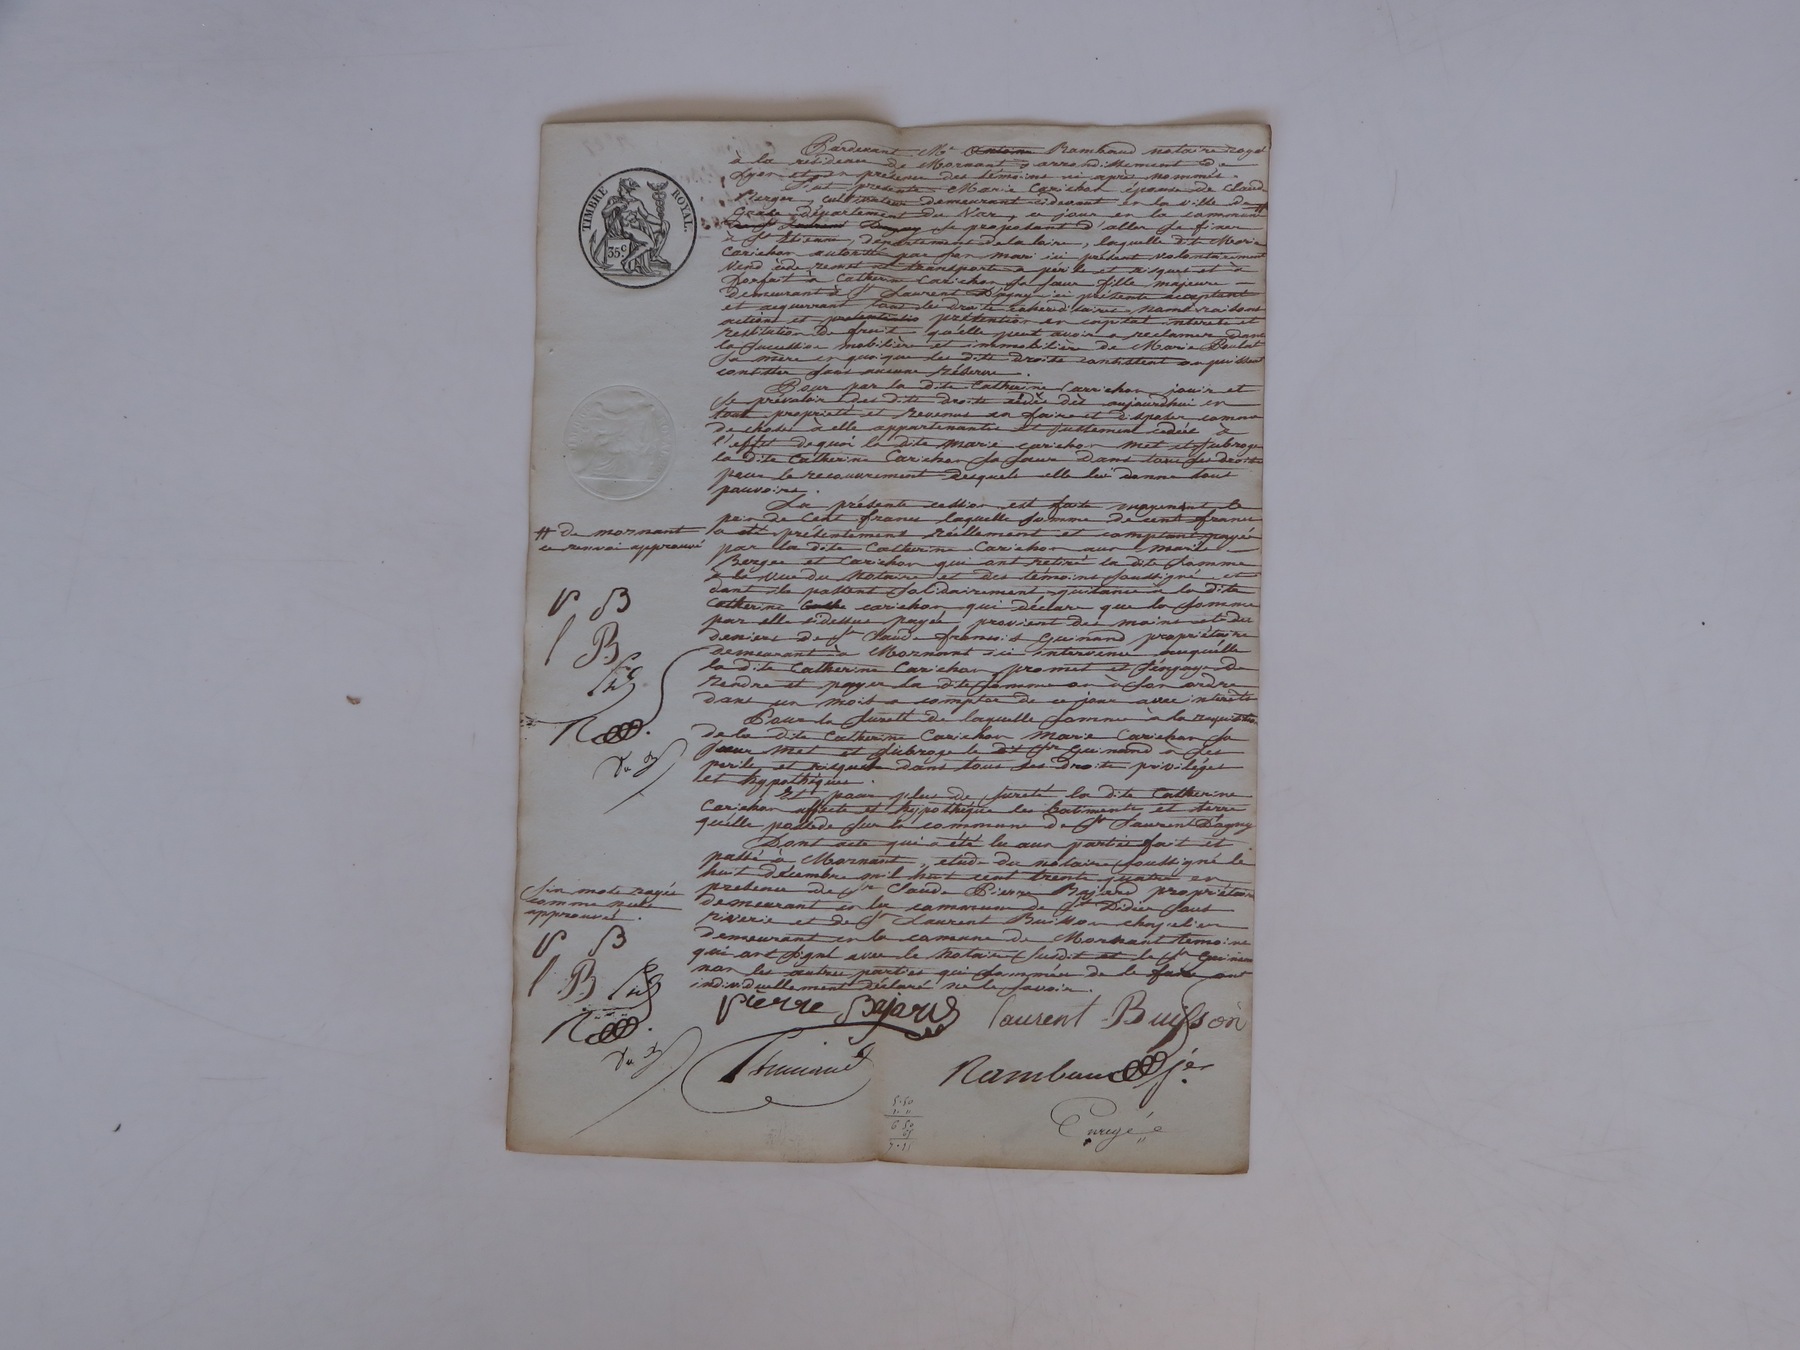 TIMBRE ROYAL.
35 c.
Pardevant Me Antoine Rambaud notaire royal
à la résidence de Mornant, arrondissement de
Lyon et en présence des témoins ci après nommés.
fut présente Marie Carichon épouse de Claude
Berger, cultivateur demeurant cidevant en la ville de
département du Var, ce jour en la commune #
de St Laurent Dagny se proposant d'aller se fixer
à St Etienne, département de la loire, laquelle dite Marie
Carichon autorisée par son mari ici présent volontairement
Vend cède remet et transporte a péril et risques et à
forfait à Catherine Carichon sa sœur fille majeure
demeurant à St Laurent D'agny ici présente acceptant
et acquerrant tous les droits noms raisons
actions et prétention en capital interets et
restitution de fruit qu'elle peut avoir a reclamer dans
la succession mobilière et immobilière de Marie
sa mère en quoique les dits droits consistent ou puissent
consister sans aucune réserve.
Pour par la dite Catherine Carrichon jouir et
se prévaloir des dits droits cédés dès aujourdhui en
tout propriété et revenus en faire et disposer comme
de choses à elle appartenantes et justement cédées à
l'effet dequoi la dite Marie carichon met et subroge
la dite Catherine Carichon sa sœur dans tous ses droits
pour le recouvrement desquels elle lui donne tout
pouvoirs.
La présente cession est faite moyennant le
prix de Cent francs laquelle somme de cent francs
a été présentement réellement et comptant payée
par la dite Catherine Carichon aux mariés
Berger et Carichon qui ont retiré la dite somme
à la vue du Notaire et des témoins soussignés et
dont ils passent solidairement quitance à la dite
Catherine carichon qui déclare que la somme
par elle cidessus payée, provient des mains et des
deniers de Sr Claude françois Guinand propriétaire
demeurant à Mornant ici intervenu auquel
la dite Catherine Carichon promet et s'engage de
rendre et payer la dite somme ou à son ordre
dans un mois a compter de ce jour avec interets
Pour la sureté de laquelle somme à la requisition
de la dite Catherine Carichon Marie Carichon sa
sœur met et subroge le dit Sr Guinand à ses
perils et risques dans tous ses droits privilèges
et hypothèques.
Et pour plus de sureté la dite Catherine
Carichon affecte et hypothèque les batiments et terre
qu'elle possède sur la commune de St Laurent D'agny
Dont acte qui a été lu aux parties fait et
passé à Mornant, etude du notaire soussigné le
huit décembre mil huit cent trente quatre en
présence de Sr Claude Pierre Bajard propriétaire
demeurant en la commune de St Didier sous
riverie et de Sr Laurent Buisson
demeurant en la commune de Mornant temoins
qui ont signé avec le notaire susdit et le Sr Guinand
non les autres parties qui sommées de le faire ont
individuellement déclaré ne le savoir.
# de mornant
ce renvoi approuvé
P B
l B
R
Six mots rayés
comme nuls
approuvés.
P B
l B
R
Pierre Bajard Laurent Buisson
Guinand
Rambaud
5.50
6 50
Enregé